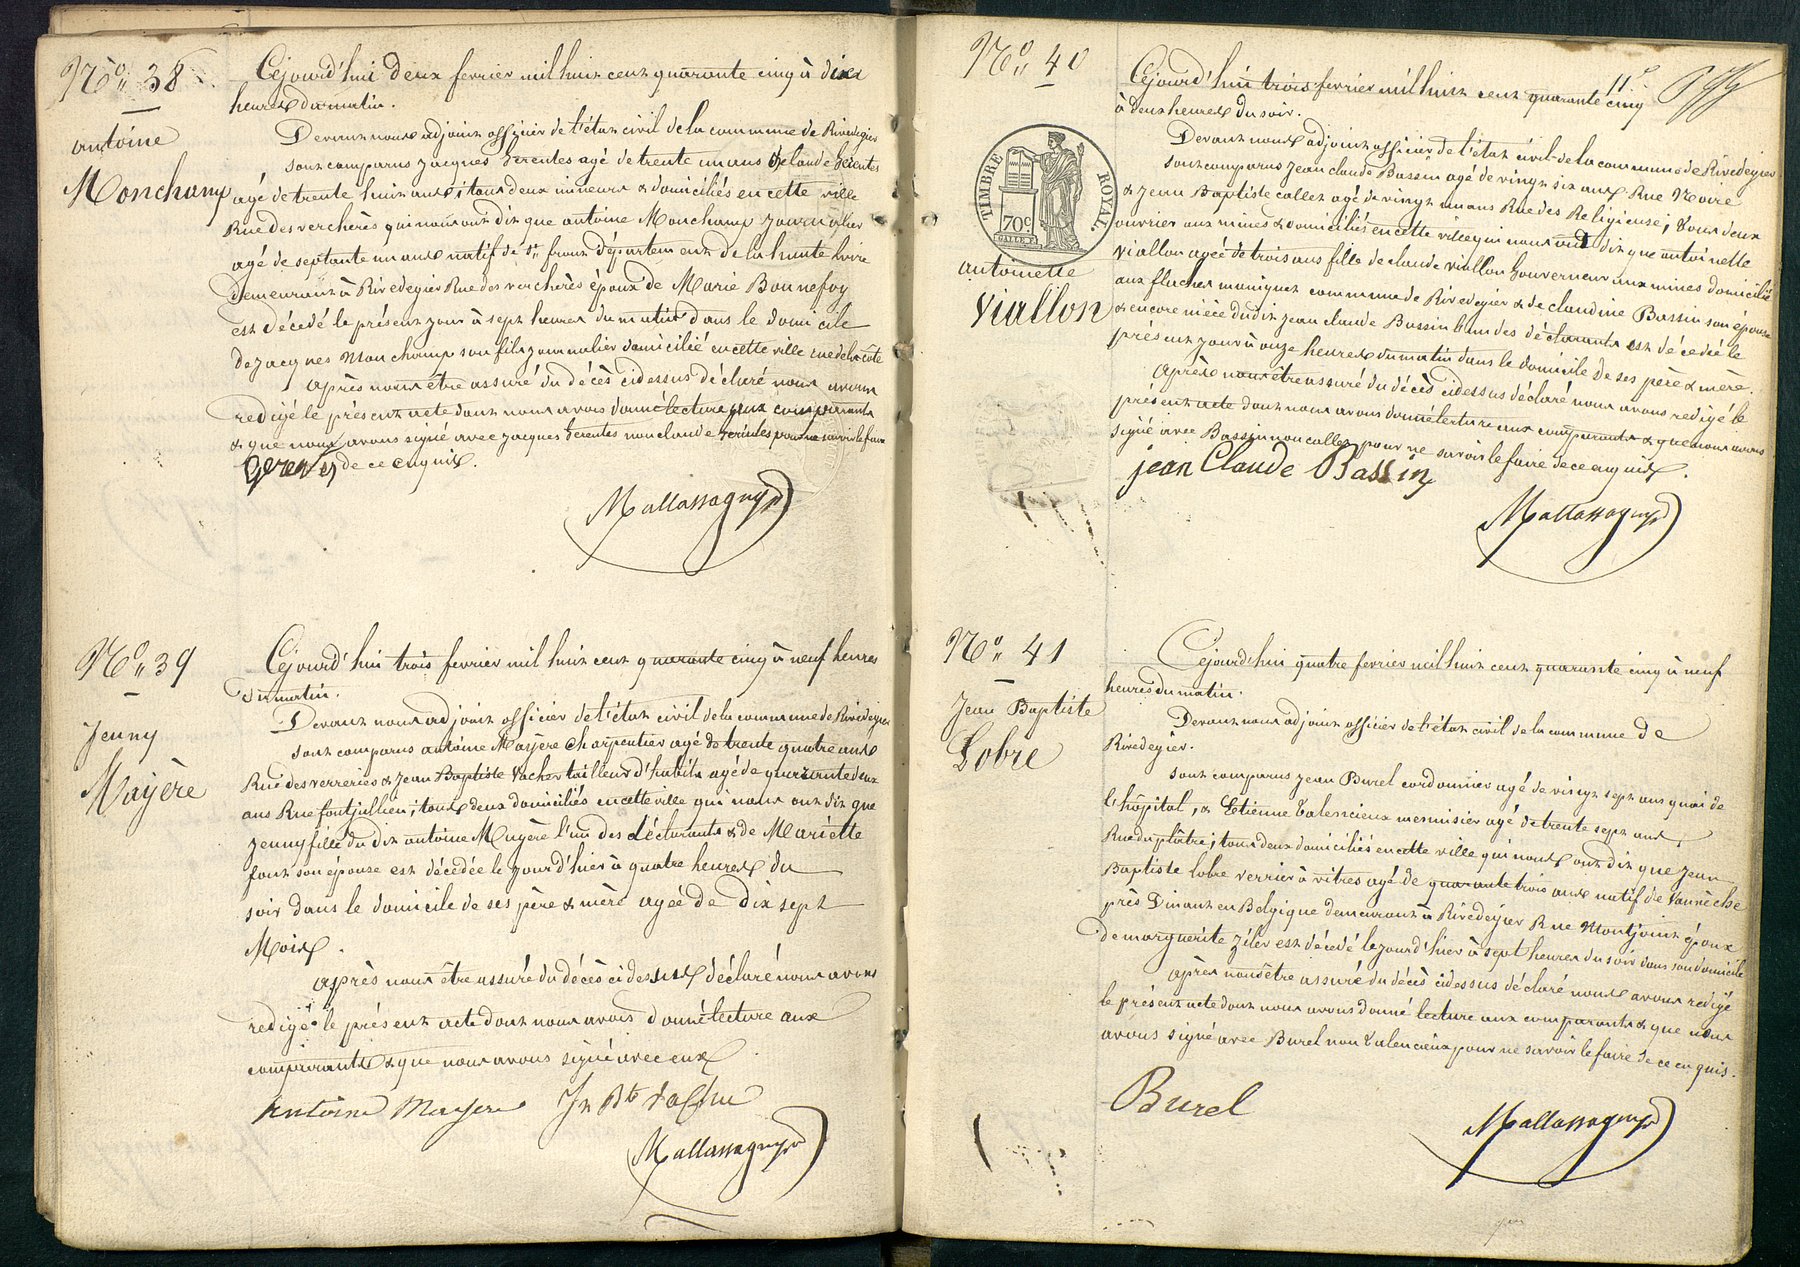 N° 38
antoine
Monchamp
Cejourd'hui deux fevrier mil huit cent quarante cinq à dix
heures du matin.
Devant nous adjoint officier de l'état civil de la commune de Rivedegier
sont comparus jacques Gerentes agé de trente un ans & claude Gerentes
agé de trente huit ans; tous deux mineurs & domiciliés en cette ville
Rue des vercherès qui nous ont dit que antoine Monchamp journalier
agé de septante un ans natif de St front département de la haute loire
demeurant à Rivedegier Rue des vercherès époux de Marie Bonnefoy
est décédé le présent jour à sept heures du matin dans le domicile
de jacques Monchamp son fils journalier domicilié en cette ville rue de la côte
après nous être assuré du décès cidessus déclaré nous avons
redigé le présent acte dont nous avons donné lecture aux comparants
& que nous avons signé avec jacques Gerentes non claude gerentes pour ne savoir le faire
de ce enquis.
Mallassagny
N° 39
Jenny
Mayère
Cejourd'hui trois fevrier mil huit cent quarante cinq à neuf heures
du matin.
Devant nous adjoint officier de l'état civil de la commune de Rivedegier
sont comparus antoine Mayère charpentier agé de trente quatre ans
Rue des verreries & jean Baptiste Vacher tailleur d'habits agé de quarante deux
ans Rue fontjullien; tous deux domiciliés en cette ville qui nous ont dit que
jenny fille du dit antoine Mayère l'un des déclarants & de Mariette
font son épouse est décédée le jour d'hier à quatre heures du
soir dans le domicile de ses père & mère agée de dix sept
Mois.
après nous être assuré du décès cidessus déclaré nous avons
redigé le présent acte dont nous avons donné lecture aux
comparants & que nous avons signé avec eux.
antoine Mayere Jn Bte Vacher
Mallassagny
N° 40
11e
TIMBRE ROYAL
70c
antoinette
Viallon
Cejourd'hui trois fevrier mil huit cent quarante cinq
à deux heures du soir.
Devant nous adjoint officier de l'état civil de la commune de Rivedegier
sont comparus jean claude Bassin agé de vingt six ans Rue Noire
& jean Baptiste collet agé de vingt un ans Rue des Religieuses; tous deux
ouvrier aux mines & domiciliés en cette ville qui nous ont dit que antoinette
viallon agée de trois ans fille de claude viallon gouverneur aux mines domicilié
aux flaches maniquet commune de Rivedegier & de claudine Bassin son épouse
& encore nièce du dit jean claude Bassin l'un des déclarants est décédée le
présent jour à onze heures du matin dans le domicile de ses père & mère
Après nous être assuré du décès cidessus déclaré nous avons redigé le
présent acte dont nous avons donné lecture aux comparants & que nous avons
signé avec Bassin non collet pour ne savoir le faire de ce enquis.
jean Claude Bassin
Mallassagny
N° 41
Jean Baptiste
Lobre
Cejourd'hui quatre fevrier mil huit cent quarante cinq à neuf
heures du matin.
Devant nous adjoint officier de l'état civil de la commune de
Rivedegier.
sont comparus jean Burel cordonnier agé de vingt sept ans quai de
l'hôpital, & Etienne Valencieux menuisier agé de trente sept ans
Rue du plâtre; tous deux domiciliés en cette ville qui nous ont dit que jean
Baptiste lobre verrier à vitres agé de quarante trois ans natif de Vonnêche
près Dinant en Belgique demeurant à Rivedegier Rue Montjoint époux
de marguerite ziler est décédé le jour d'hier à sept heures du soir dans son domicile
après nous être assuré du décès cidessus déclaré nous avons redigé
le présent acte dont nous avons donné lecture aux comparants & que nous
avons signé avec Burel non Valencieux pour ne savoir le faire de ce enquis.
Burel
Mallassagny